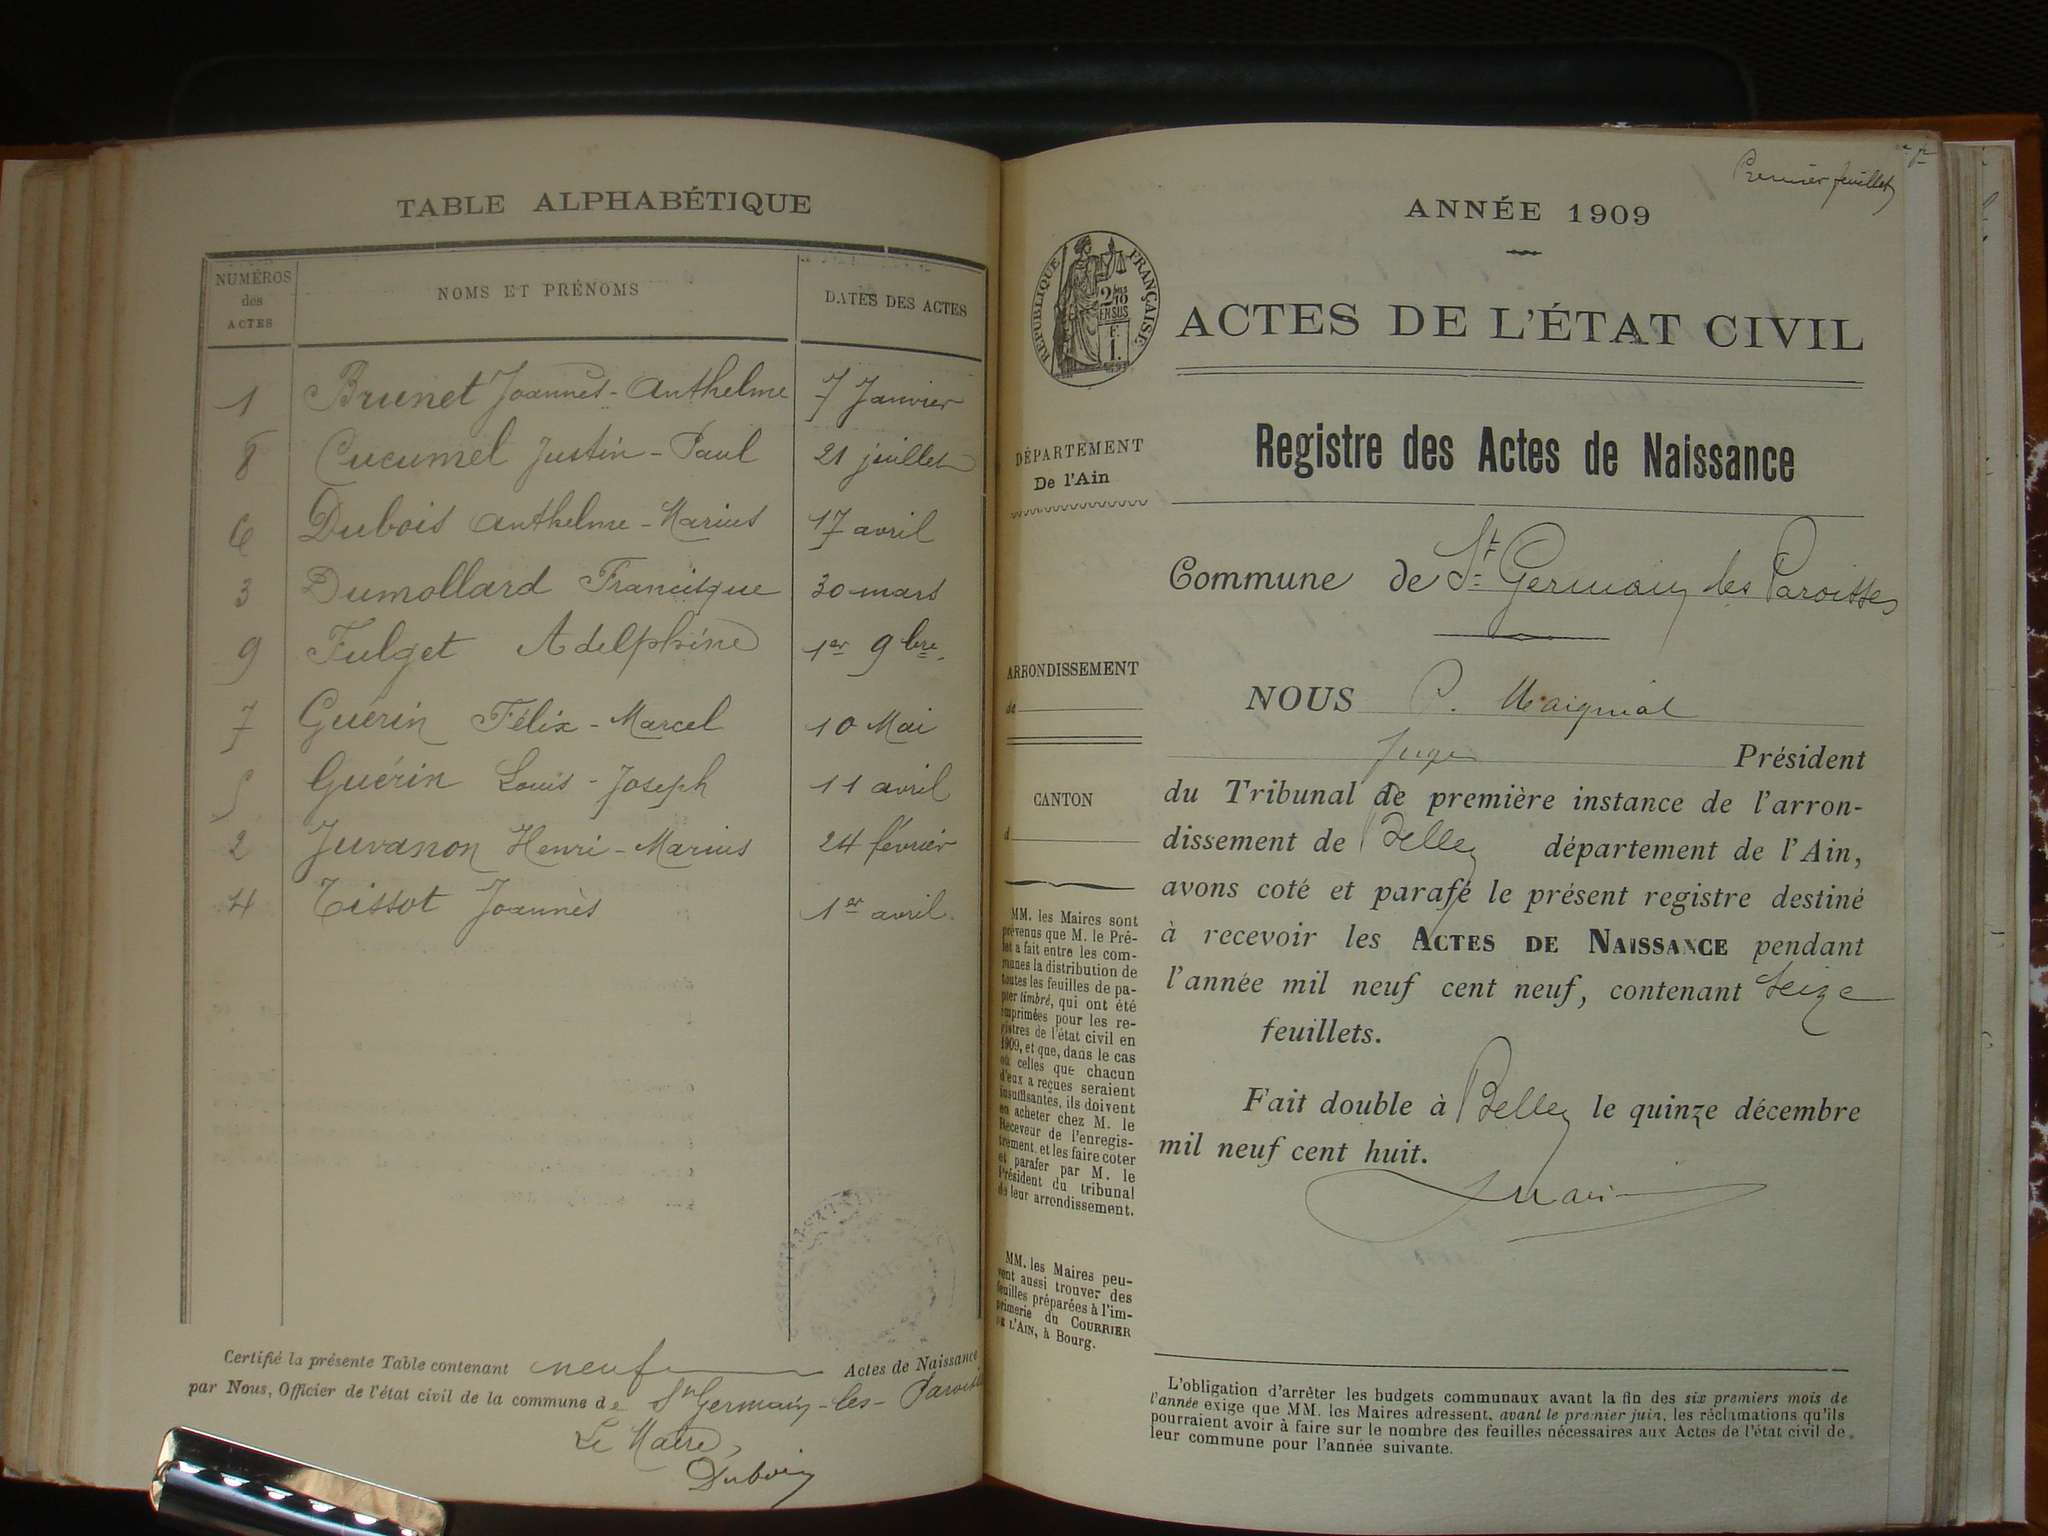 TABLE ALPHABÉTIQUE
NUMÉROS
des
ACTES
NOMS ET PRÉNOMS
DATES DES ACTES
1 Brunet Joannès-Anthelme 7 Janvier
8 Cucumel Justin-Paul 21 juillet
6 Dubois Anthelme-Marius 17 avril
3 Dumollard Francisque 30 mars
9 Fulget Adelphine 1er 9bre.
7 Guérin Félix-Marcel 10 Mai
5 Guérin Louis-Joseph 11 avril
2 Juvanon Henri-Marius 24 février
4 Tissot Joannès 1er avril
Certifié la présente Table contenant neuf Actes de Naissance
par Nous, Officier de l'état civil de la commune de St Germain-les-Paroisses
Le Maire,
Dubois
Premier feuillet
ANNÉE 1909
RÉPUBLIQUE FRANÇAISE
ACTES DE L'ÉTAT CIVIL
Registre des Actes de Naissance
DÉPARTEMENT
De l'Ain
Commune de St Germain les Paroisses
ARRONDISSEMENT
de
CANTON
d
MM. les Maires sont
prévenus que M. le Pré-
fet a fait entre les com-
munes la distribution de
toutes les feuilles de pa-
pier timbré, qui ont été
imprimées pour les re-
gistres de l'état civil en
1909, et que, dans le cas
où celles que chacun
d'eux a reçues seraient
insuffisantes, ils doivent
en acheter chez M. le
Receveur de l'enregis-
trement, et les faire coter
et parafer par M. le
Président du tribunal
de leur arrondissement.
MM. les Maires peu-
vent aussi trouver des
feuilles préparées à l'im-
primerie du COURRIER
DE L'AIN, à Bourg.
NOUS P. Maigniat
Juge Président
du Tribunal de première instance de l'arron-
dissement de Belley département de l'Ain,
avons coté et parafé le présent registre destiné
à recevoir les ACTES DE NAISSANCE pendant
l'année mil neuf cent neuf, contenant seize
feuillets.
Fait double à Belley le quinze décembre
mil neuf cent huit.
L'obligation d'arrêter les budgets communaux avant la fin des six premiers mois de
l'année exige que MM. les Maires adressent, avant le premier juin, les réclamations qu'ils
pourraient avoir à faire sur le nombre des feuilles nécessaires aux Actes de l'état civil de
leur commune pour l'année suivante.